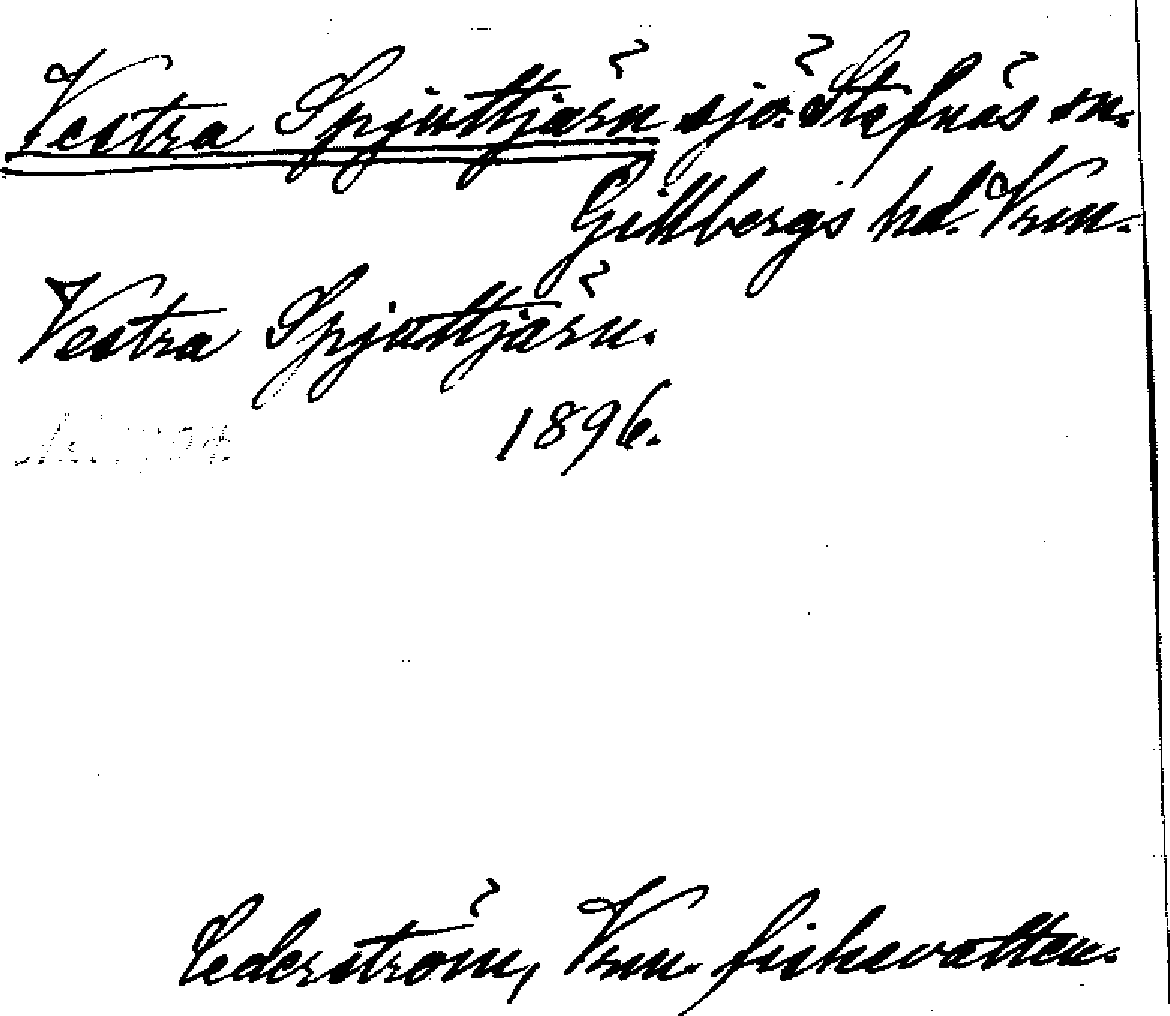 Vestra Spjuttjärn sjö. Stafnäs sn.
Gillbergs hd. Vrm.
Vestra Spjuttjärn.
1896.
Cederström, Vrm. fiskevatten.